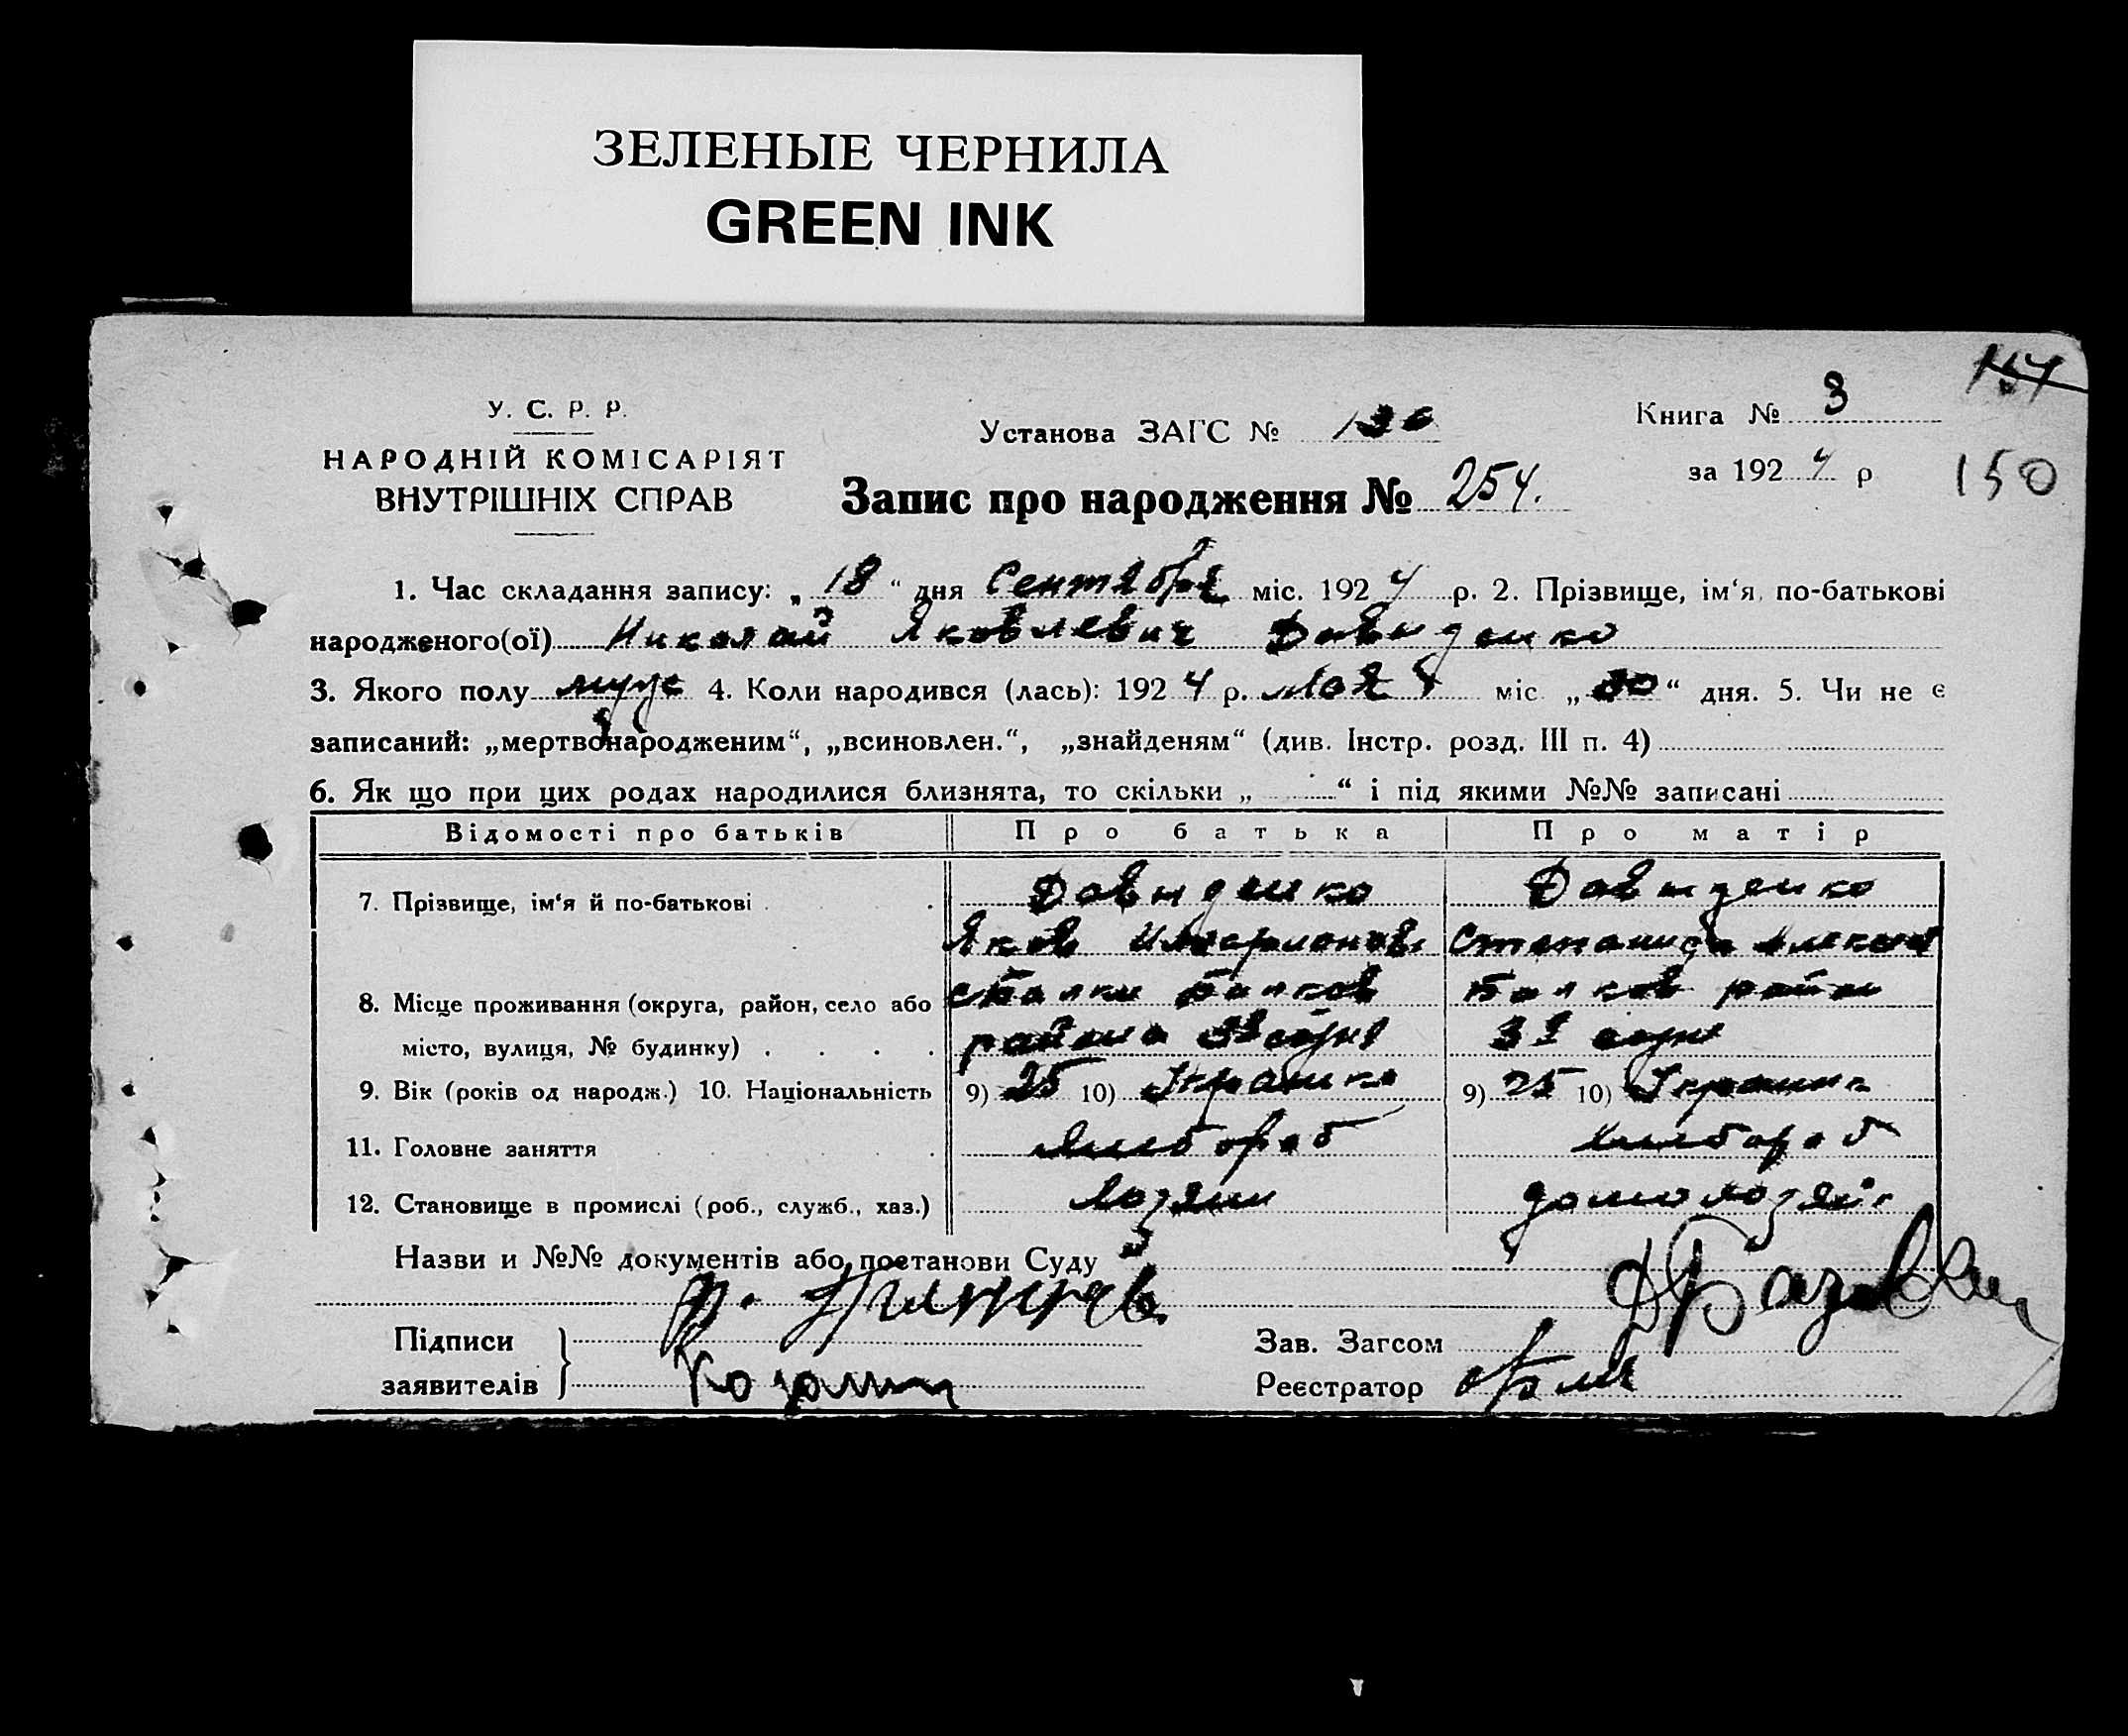 ЗЕЛЕНЫЕ ЧЕРНИЛА
GREEN INK
154
У. С. Р. Р.
НАРОДНІЙ КОМІСАРІЯТ
ВНУТРІШНІХ СПРАВ
Установа ЗАГС № 130
Книга № 3
за 1924 р
150
Запис про народження № 254.
1. Час складання запису: „18“ дня Сентября міс. 1924 р. 2. Прізвище, ім‘я, по-батькові
народженого(ої) Николай Яковлевич Давиденко
3. Якого полу муж 4. Коли народився (лась): 1924 р. міс „30“ дня. 5. Чи не є
записаний: „мертвонародженим“, „всиновлен.“, „знайденям“ (див. Інстр. розд. III п. 4)
6. Як що при цих родах народилися близнята, то скільки „ “ і під якими №№ записані
Відомості про батьків Про батька Про матір
7. Прізвище, ім‘я й по-батькові Давиденко Давиденко
Яков Степанида
8. Місце проживання (округа, район, село або район
місто, вулиця, № будинку) района
9. Вік (років од народж.) 10. Національність 9) 25 10) 9) 25 10)
11. Головне заняття Хлебороб Хлебороб
12. Становище в промислі (роб., служб., хаз.) Хозяин
Назви и №№ документів або постанови Суду
Підписи
заявителів
Зав. Загсом
Реєстратор